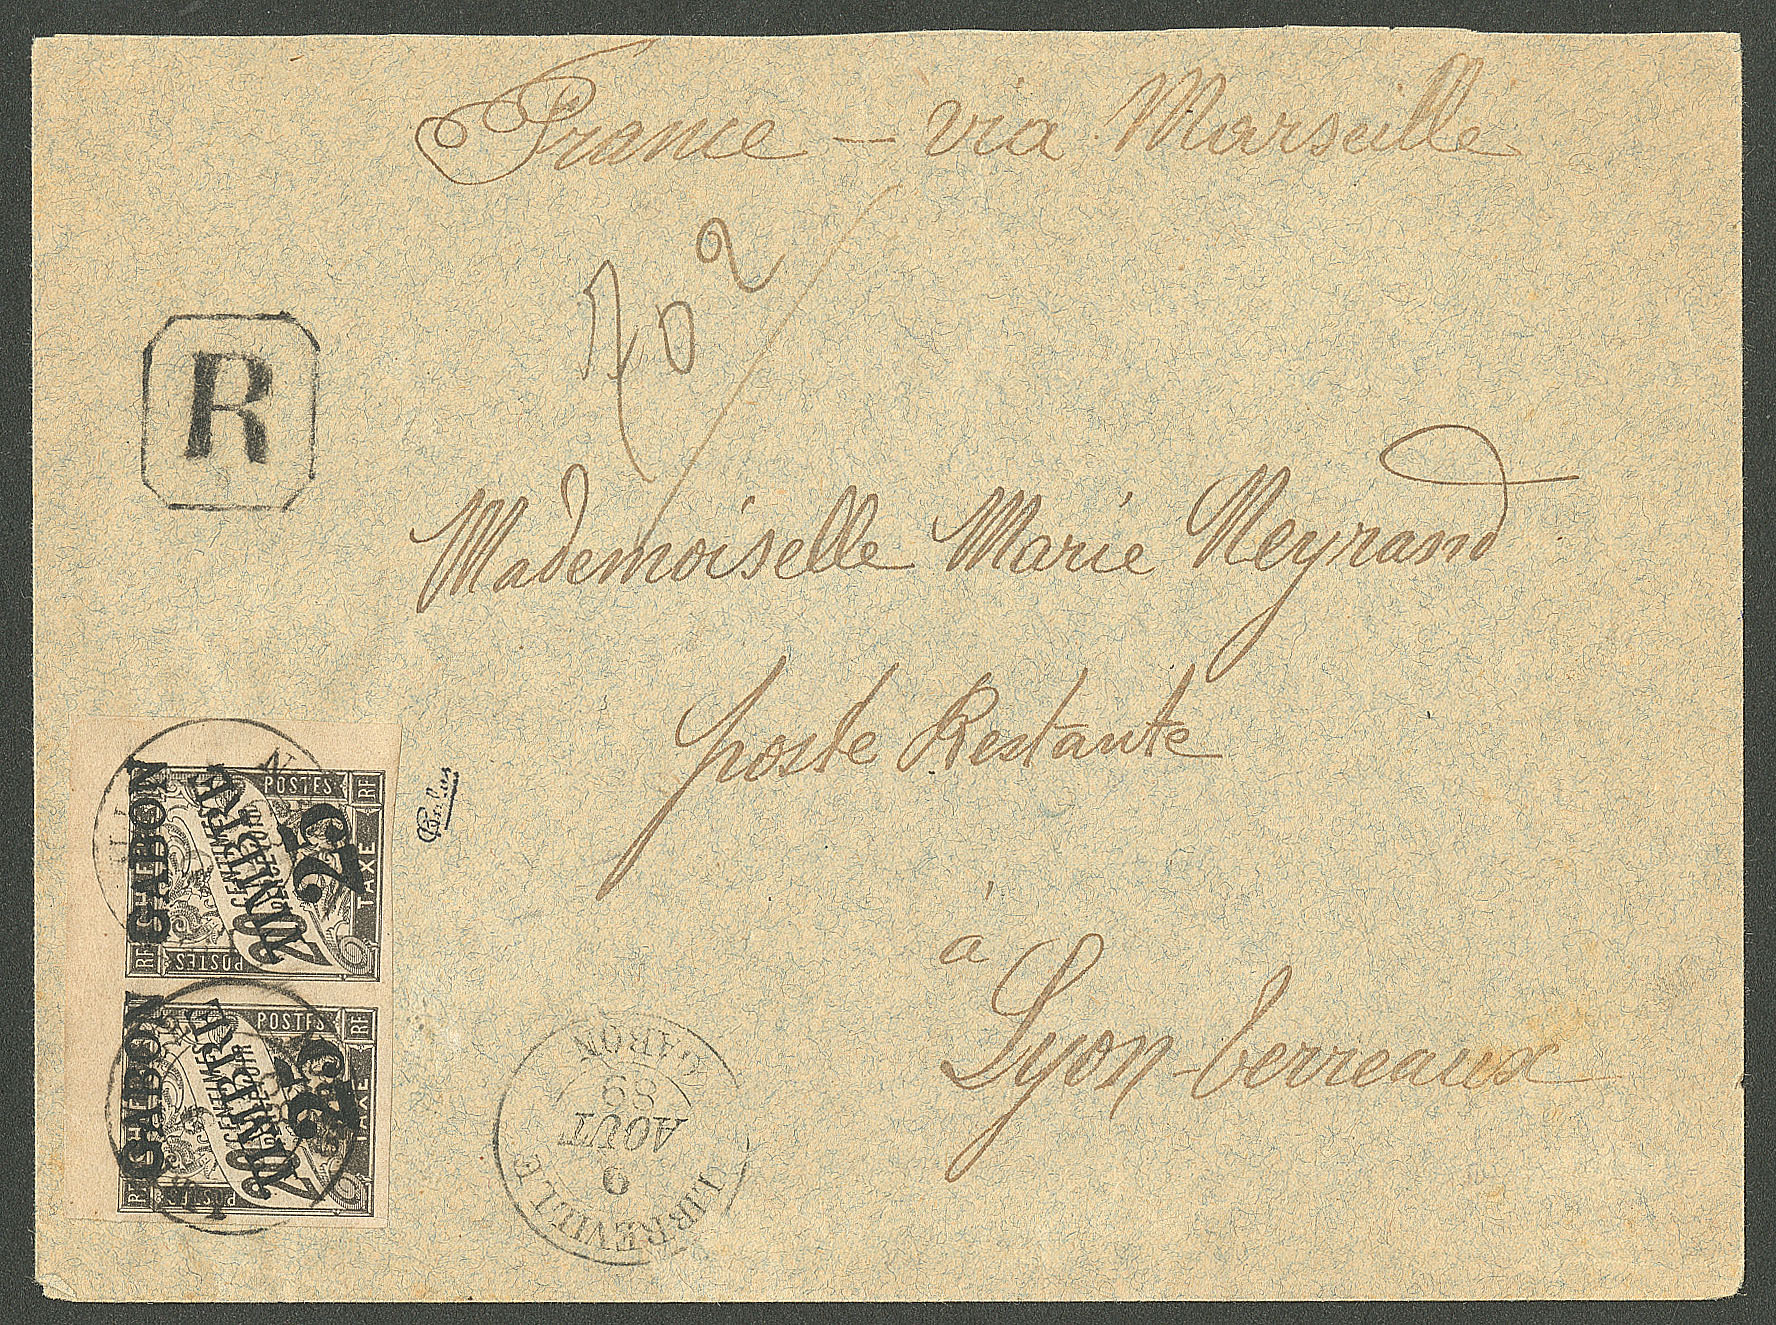 France — via Marseille
702
R
Mademoiselle Marie Neyrand
poste Restante
à
Lyon-Terreaux
GABON
TIMBRE
25
POSTES
RF
TAXE
RF
POSTES
20
GABON
TIMBRE
25
POSTES
RF
TAXE
RF
POSTES
20
LIBREVILLE
9
AOUT
89
GABON